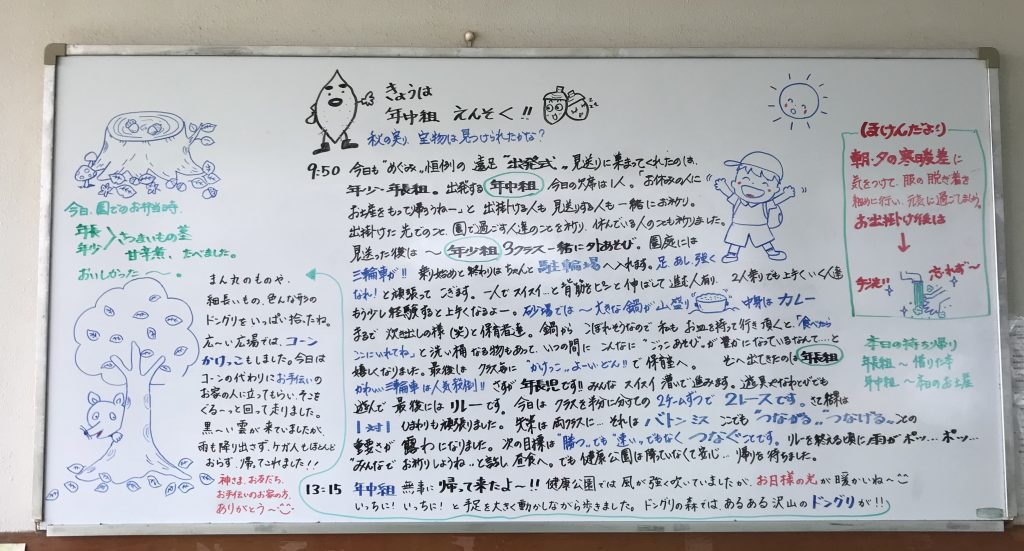 きょうは
年中組 えんそく!!
秋の実り、宝物は見つけられたかな?
9:50 今日も"めぐみ"恒例の 遠足"出発式"。見送りに集まってくれたのは、
年少〜年長組。出発する 年中組 今日の欠席は1人。「お休みの人に
お土産をもって帰うねー」と 出掛ける人も 見送りする人も 一緒にお祈り。
出掛けた先でのこと、園で過ごす人達のことを祈り、休んでいる人のことも祈りました。
見送った後は 〜 年少組 3クラス一緒に外あそび。園庭には
三輪車が!! 乗り始めと終わりはちゃんと 駐輪場 へ入れます。足、あし、強く
なれ!と頑張って こぎます。一人でスイスイ…と背筋をピンと伸ばして 進む人有り、 2人乗りでも上手くいく人達
もう少し経験すると上手くなるよー。砂場では〜 大きな鍋が山盛り 中身は カレー
まで 炊き出しの様(笑)と保育者達。鍋から こぼれそうなので 私も お皿を持って行き頂くと、「食べたら
ここにいれてね」と洗い桶なる物もあって、いつの間に こんなに"ごっこあそび"が豊かになっているなんて…と
嬉しくなりました。最後は クラス毎に"かけっこ、よーいどん!!"で保育室へ。 そこへ出てきたのは 年長組
かわいい三輪車は人気殺到!! さすが 年長児です!! みんな スイスイ 漕いで進みます。遊具やなわとびでも
遊んで 最後には リレーです。今日は クラスを半分に分けての 2チームずつで 2レースです。さて勝敗は
1対1 ひまわりも頑張りました。失策は両クラスに…それは バトンミス ここでも"つながる""つなげる"ことの
重要さが 露わになりました。次の目標は「勝っても" 速い"でもなく つなぐことです。リレーを終える頃に雨が ポッ… ポッ…
"みんなで お祈りしようね"と話し 昼食へ。でも 健康公園は降っていなくて安心… 帰りを待ちました。
13:15 年中組 無事に 帰って来たよ〜!! 健康公園では 風が強く吹いていましたが、お日様の光が 暖かいね〜
いっちに! いっちに!と手足を大きく動かしながら歩きました。ドングリの森では、あるある沢山のドングリが!!
まん丸のものや、
細長いもの、色んなサイズの
ドングリをいっぱい拾ったね。
広〜い広場では、コーン
かけっこもしました。今日は
コーンの代わりにお手伝いの
お客の人に立ってもらい、そこを
ぐる〜っと回って走りました。
黒〜い雲が来ていましたが、
雨も降り出さず、ケガ人もほんど
おらず、帰ってこれました!!
神さま、お友だち、
お手伝いのお客の方、
ありがとう〜
今日、園でのお弁当時、
年長
年少 さつまいもの茎
甘辛煮、たべました。
おいしかった 〜〜。
(ほけんだより)
朝・夕の寒暖差に
気をつけて、服の脱ぎ着を
細めに行い、元気に過ごしましょう。
お出掛け後は
手洗い
忘れず〜
本日の持ち帰り
年長組〜 借りた本
年中組〜 本日のお土産